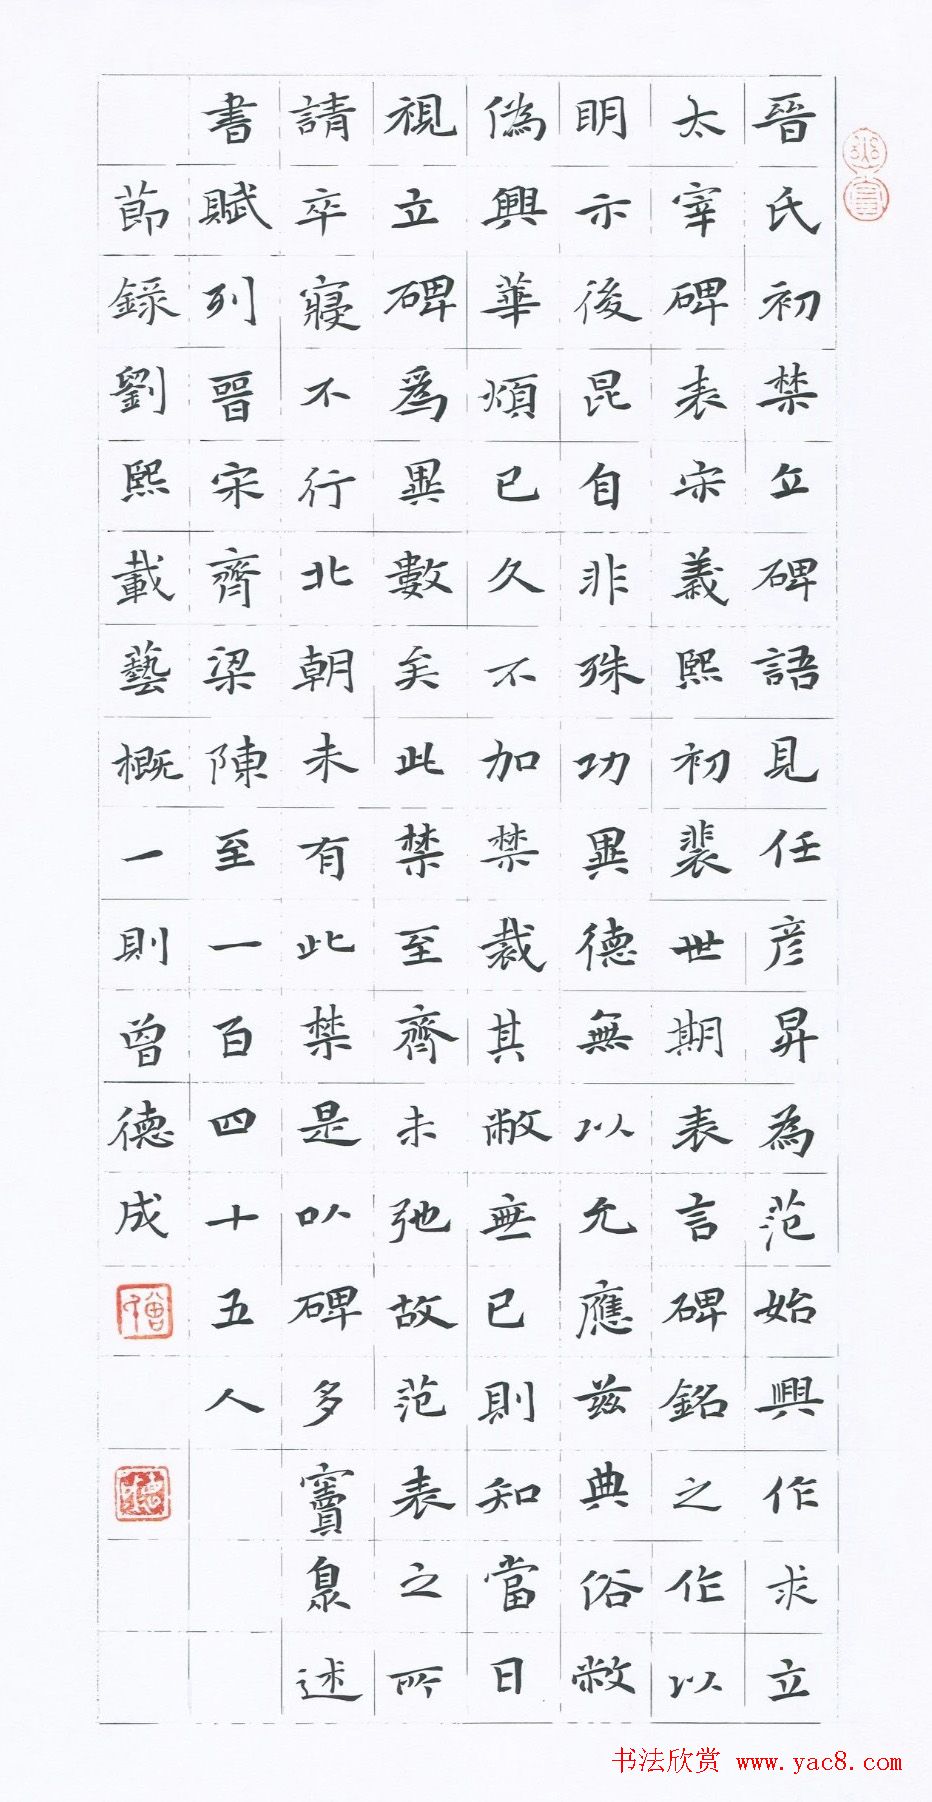 晉氏初禁立碑語見任彦昇為范始興作求立
太宰碑表宋義熙初裴世期表言碑銘之作以
明示後昆自非殊功異德無以允應茲典俗敝
偽興華煩已久不加禁裁其敝無已則知當日
視立碑爲異數矣此禁至齊未弛故范表之所
請卒寢不行北朝未有此禁是以碑多竇臮述
書賦列晉宋齊梁陳至一百四十五人
節錄劉熙載藝概一則曾德成
书法欣赏 www.yac8.com